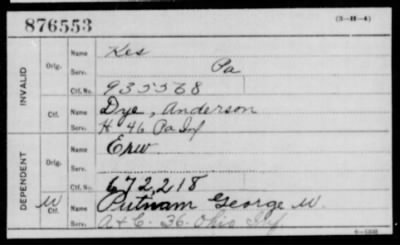 876553 (3—H—4)
INVALID
Orig.
Name
Serv. Pa
Ctf. No. 935568
Ctf.
Name Dye, Anderson
Serv. H 46 Pa Inf
DEPENDENT
Orig.
Name
Serv.
Ctf. No. 672,218
W
Ctf.
Name Putnam George W.
Serv. A & C. 36. Ohio Inf